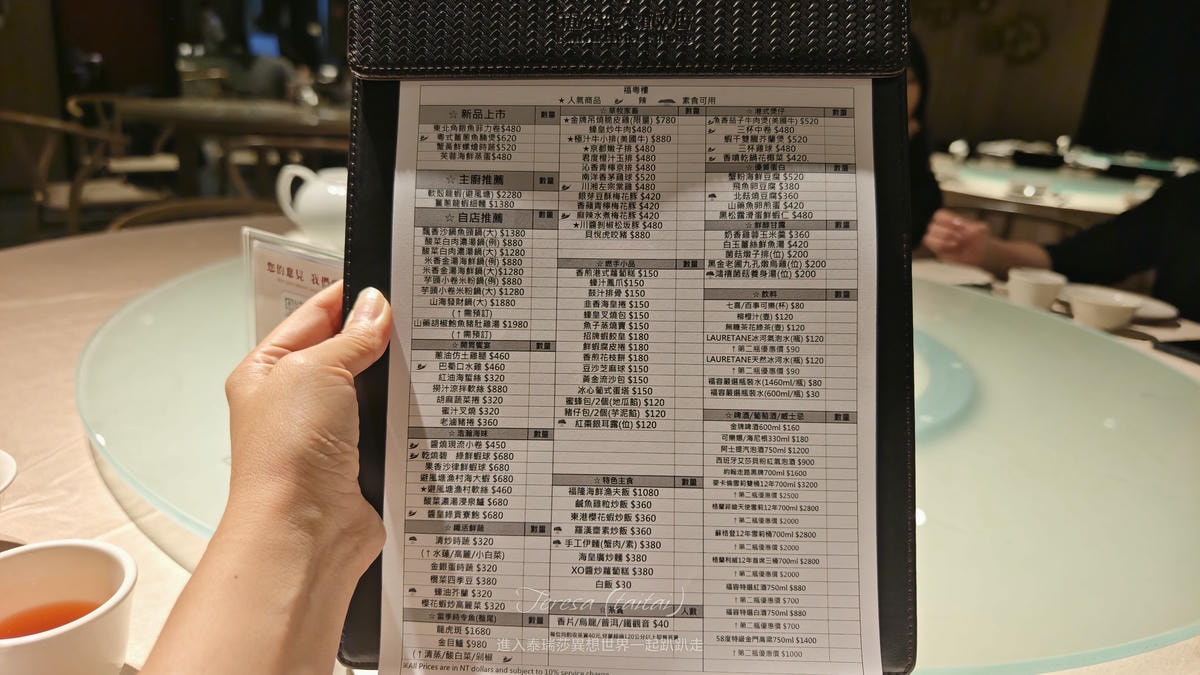 福粵樓
★人氣商品 辣 素食可用
☆新品上市 數量
東北角銀魚菲力卷$480
粵式薑蔥魚腩煲$620
蟹黃鮮蝶燴時蔬$520
芙蓉海鮮蒸蛋$480
☆主廚推薦 數量
軟殼龍蝦(避風塘) $2280
薑蔥龍蝦細麵 $1380
☆自店推薦 數量
飄香沙鍋魚頭鍋(大) $1380
酸菜白肉濃湯鍋(例) $880
酸菜白肉濃湯鍋(大) $1280
米香金湯海鮮鍋(例) $880
米香金湯海鮮鍋(大) $1280
芋頭小卷米粉鍋(例) $880
芋頭小卷米粉鍋(大) $1280
山海發財鍋(大) $1880
(↑需預訂)
山藥胡椒鮑魚豬肚雞湯 $1980
(↑需預訂)
☆開胃饗宴 數量
蔥油仿土雞腿 $460
巴蜀口水雞 $460
紅油海蜇絲 $320
撈汁涼拌軟絲 $880
胡麻蔬菜捲 $320
蜜汁叉燒 $320
老滷豬捲 $360
☆浩瀚海味 數量
醬燒現流小卷 $450
乾燒碧綠鮮蝦球 $680
果香沙律鮮蝦球 $680
避風塘漁村海大蝦 $680
★避風塘漁村軟絲 $460
酸菜濃湯浸泉鱸 $680
醬皇綠貢寮鮑 $680
☆纖活鮮蔬 數量
清炒時蔬 $320
(↑水蓮/高麗/小白菜)
金銀蛋時蔬 $320
欖菜四季豆 $380
蠔油芥蘭 $320
櫻花蝦炒高麗菜 $320
☆當季時令魚(整尾) 數量
龍虎斑 $1680
金目鱸 $980
(↑清蒸/酸白菜/剁椒
☆草牧家畜 數量
★金牌吊燒脆皮雞(限量) $780
蠔皇炒牛肉$480
★極汁牛小排(美國牛) $880
★京都嫩子排 $480
君度橙汁玉排 $480
沁香青檸京排 $480
南洋香茅雞球 $520
川湘左宗棠雞 $480
銀芽豆酥梅花豚 $420
香蘋青檸梅花豚 $420
麻辣水煮梅花豚 $420
★川醬剝椒松坂豚 $480
貝悅虎咬豬 $880
☆燃手小品 數量
香煎港式蘿蔔糕 $150
蠔汁鳳爪$150
豉汁排骨 $150
韭香海皇捲 $150
蠔皇叉燒包 $150
魚子蒸燒賣 $150
招牌蝦餃皇 $180
鮮蝦腐皮捲 $180
香煎花枝餅 $180
豆沙芝麻球 $150
黃金流沙包 $150
冰心葡式蛋塔 $150
蜜蜂包/2個(地瓜餡) $120
豬仔包/2個(芋泥餡) $120
紅棗銀耳露(位) $120
☆特色主食 數量
福隆海鮮漁夫飯 $1080
鹹魚雞粒炒飯 $360
東港櫻花蝦炒飯 $360
羅漢齋素炒飯 $360
手工伊麵(蟹肉/素) $380
海皇廣炒麵 $380
XO醬炒蘿蔔糕 $380
白飯 $30
☆茶資 人數
香片/烏龍/普洱/鐵觀音 $40
☆港式煲仔 數量
魚香茄子牛肉煲(美國牛) $520
三杯中卷 $480
蝦干雙腿芥蘭煲 $520
三杯雞球 $480
香噴乾鍋花椰菜 $420
☆優質蛋白 數量
蟹粉海鮮豆腐 $520
飛魚卵豆腐 $380
北菇燒豆腐$360
山藥魚卵煎蛋 $420
黑松露滑蛋鮮蝦仁 $480
☆鮮醇甘露 數量
奶香雞蓉玉米羹 $360
白玉薑絲鮮魚湯 $420
菌菇燉子排(位) $200
黑金老圃九孔燉烏雞(位) $200
鴻禧菌菇養身湯(位) $200
☆飲料 數量
七喜/百事可樂(杯) $80
柳橙汁(壺) $120
無糖茶花綠茶(壺) $120
LAURETANE冰河氣泡水(瓶) $120
↑第二瓶優惠價 $90
LAURETANE天然冰河水(瓶) $120
↑第二瓶優惠價 $90
福容嚴選瓶裝水(1460ml/瓶) $80
福容嚴選瓶裝水(600ml/瓶) $30
☆啤酒/葡萄酒/威士忌 數量
金牌啤酒600ml $160
可樂娜/海尼根330ml $180
阿士提汽泡酒750ml $1200
西班牙艾莎貝粉紅氣泡酒 $900
約翰走路黑牌700ml $1600
麥卡倫雪莉雙桶12年700ml $3200
↑第二瓶優惠價 $2500
格蘭菲迪天使雪莉12年700ml $2800
↑第二瓶優惠價 $2000
蘇格登12年雪莉700ml $2800
↑第二瓶優惠價 $2000
格蘭利威12年首席三桶700ml $2800
↑第二瓶優惠價 $2000
福容特選紅酒750ml $880
↑第二瓶優惠價 $700
福容特選白酒750ml $880
↑第二瓶優惠價 $700
58度特級金門高粱750ml $1400
↑第二瓶優惠價 $1000
※All Prices are in NT dollars and subject to 10% service charge
您的意見 我們
Teresa (taitai)
進入泰瑞莎異想世界一起趴趴走